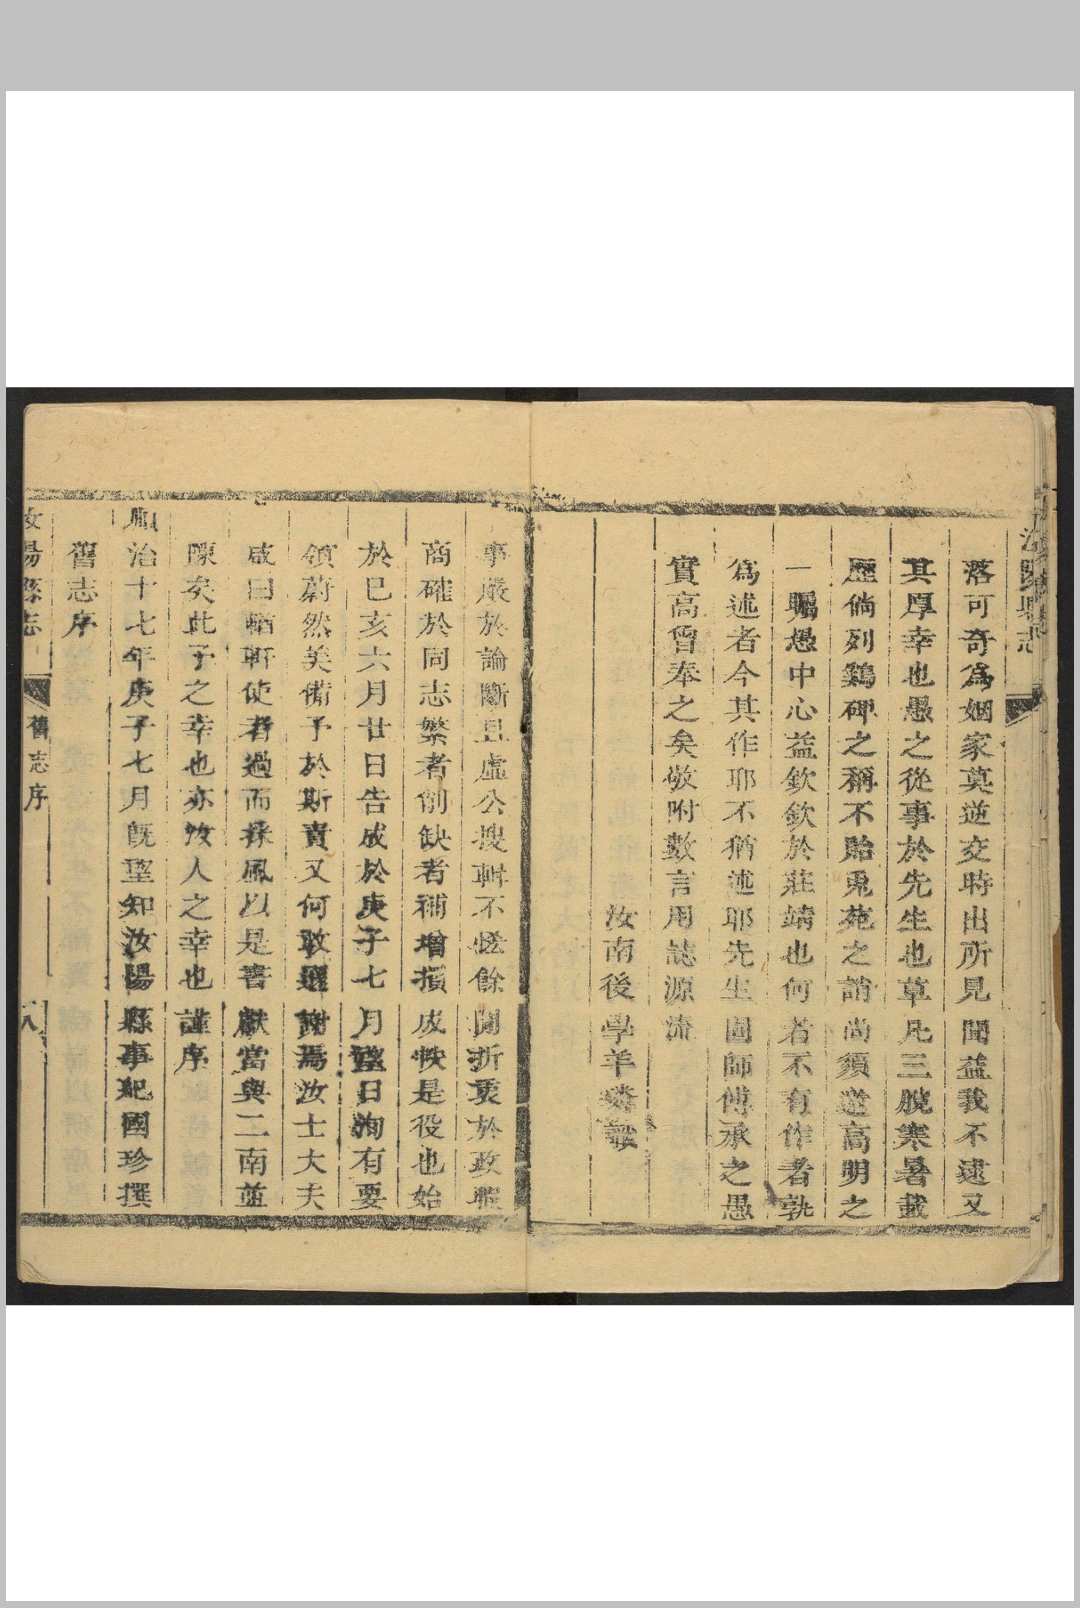 汝陽縣志
落可奇為姻家莫逆交時出所見聞益我不逮又
其厚幸也愚之從事於先生也草凡三脫寒暑載
歷倘列鷄碑之稱不貽兎苑之誚尚須遊高明之
一矚愚中心益欽欽於莊靖也何者不有作者孰
為述者今其作耶不猶述耶先生固師傅承之愚
實高曾奉之矣敬附數言用誌源流
汝南後學羊璘譔
事嚴於論斷且虛公搜輯不恡餘閒折衷於政暇
商確於同志繁者削缺者補增損成帙是役也始
於巳亥六月廿日告成於庚子七月望日洵有要
領蔚然美備予於斯責又何敢遜謝焉汝士大夫
咸曰輶軒使者過而采風以是書獻當與二南並
陳矣此予之幸也亦汝人之幸也謹序
順治十七年庚子七月既望知汝陽縣事紀國珍撰
舊志序
汝陽縣志
舊志序
八